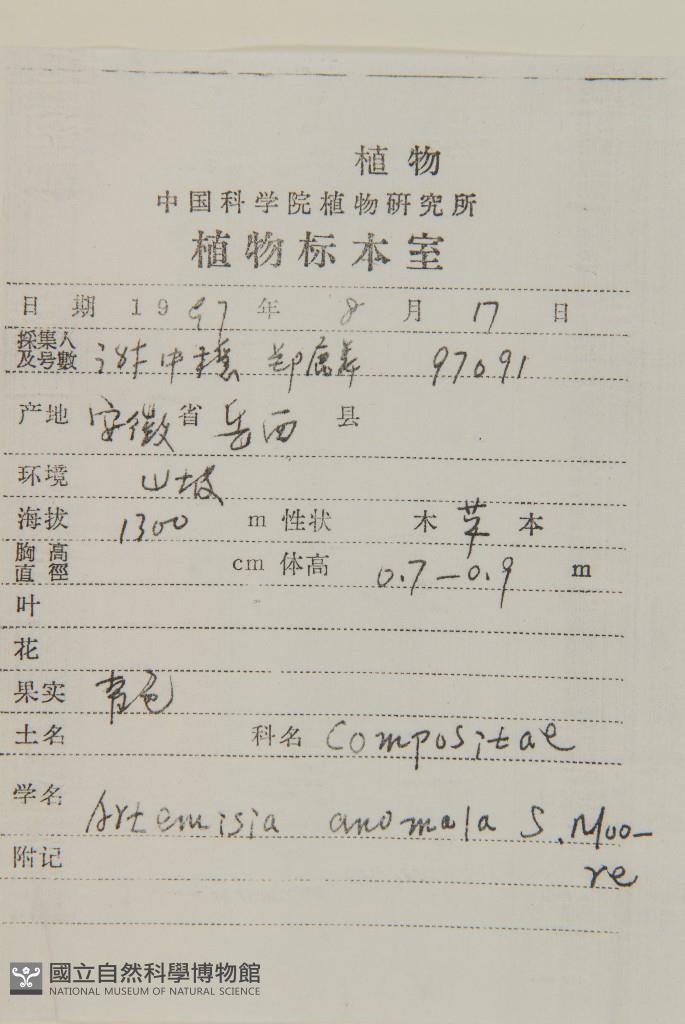 植物
中国科学院植物研究所
植物标本室
日期 1997年 8月 17日
採集人及号數 97091
产地 安徽省 岳西 县
环境 山坡
海拔 1300 m 性状 木 草 本
胸高直徑 cm 体高 0.7-0.9 m
叶
花
果实 青色
土名 科名 Compositae
学名 Artemisia anomala S. Moo-
re
附记
國立自然科學博物館
NATIONAL MUSEUM OF NATURAL SCIENCE